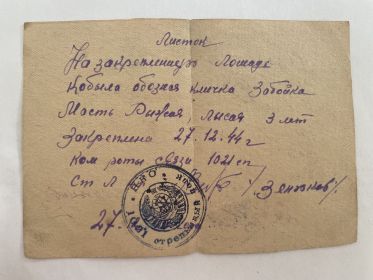 Листок
На закрепленную Лошадь
Кобыла обозная кличка Забойка
Масть Рыжая, лысая 3 лет
Закреплена 27.12.44г
Ком роты связи 1021сп
Ст Л /Зеньков/
НКО
стрелковый
27.